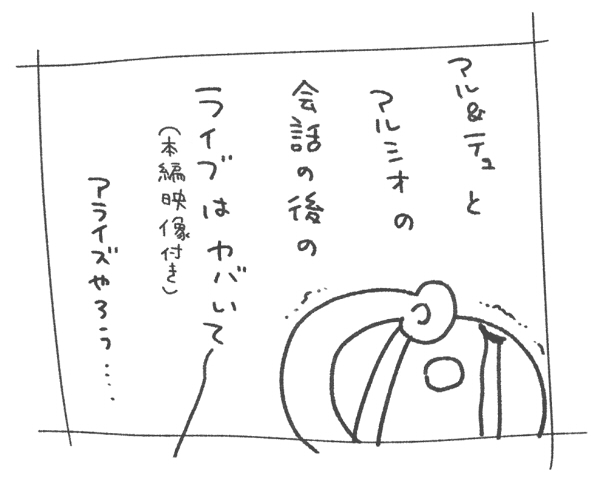 アル&テュと
アルミオの
会話の後の
ライブはヤバいて
（本編映像付き）
アライズやろう…